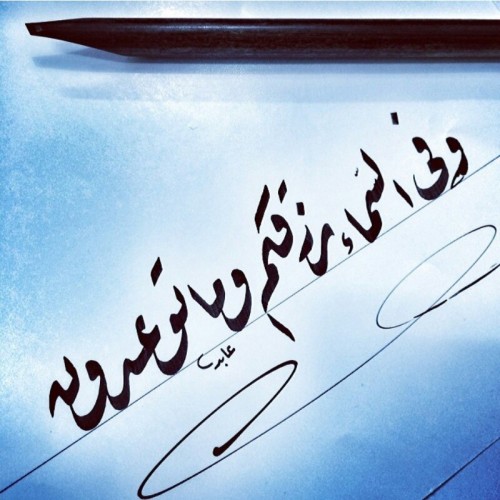 وفي السماء رزقكم وما توعدون
عابد